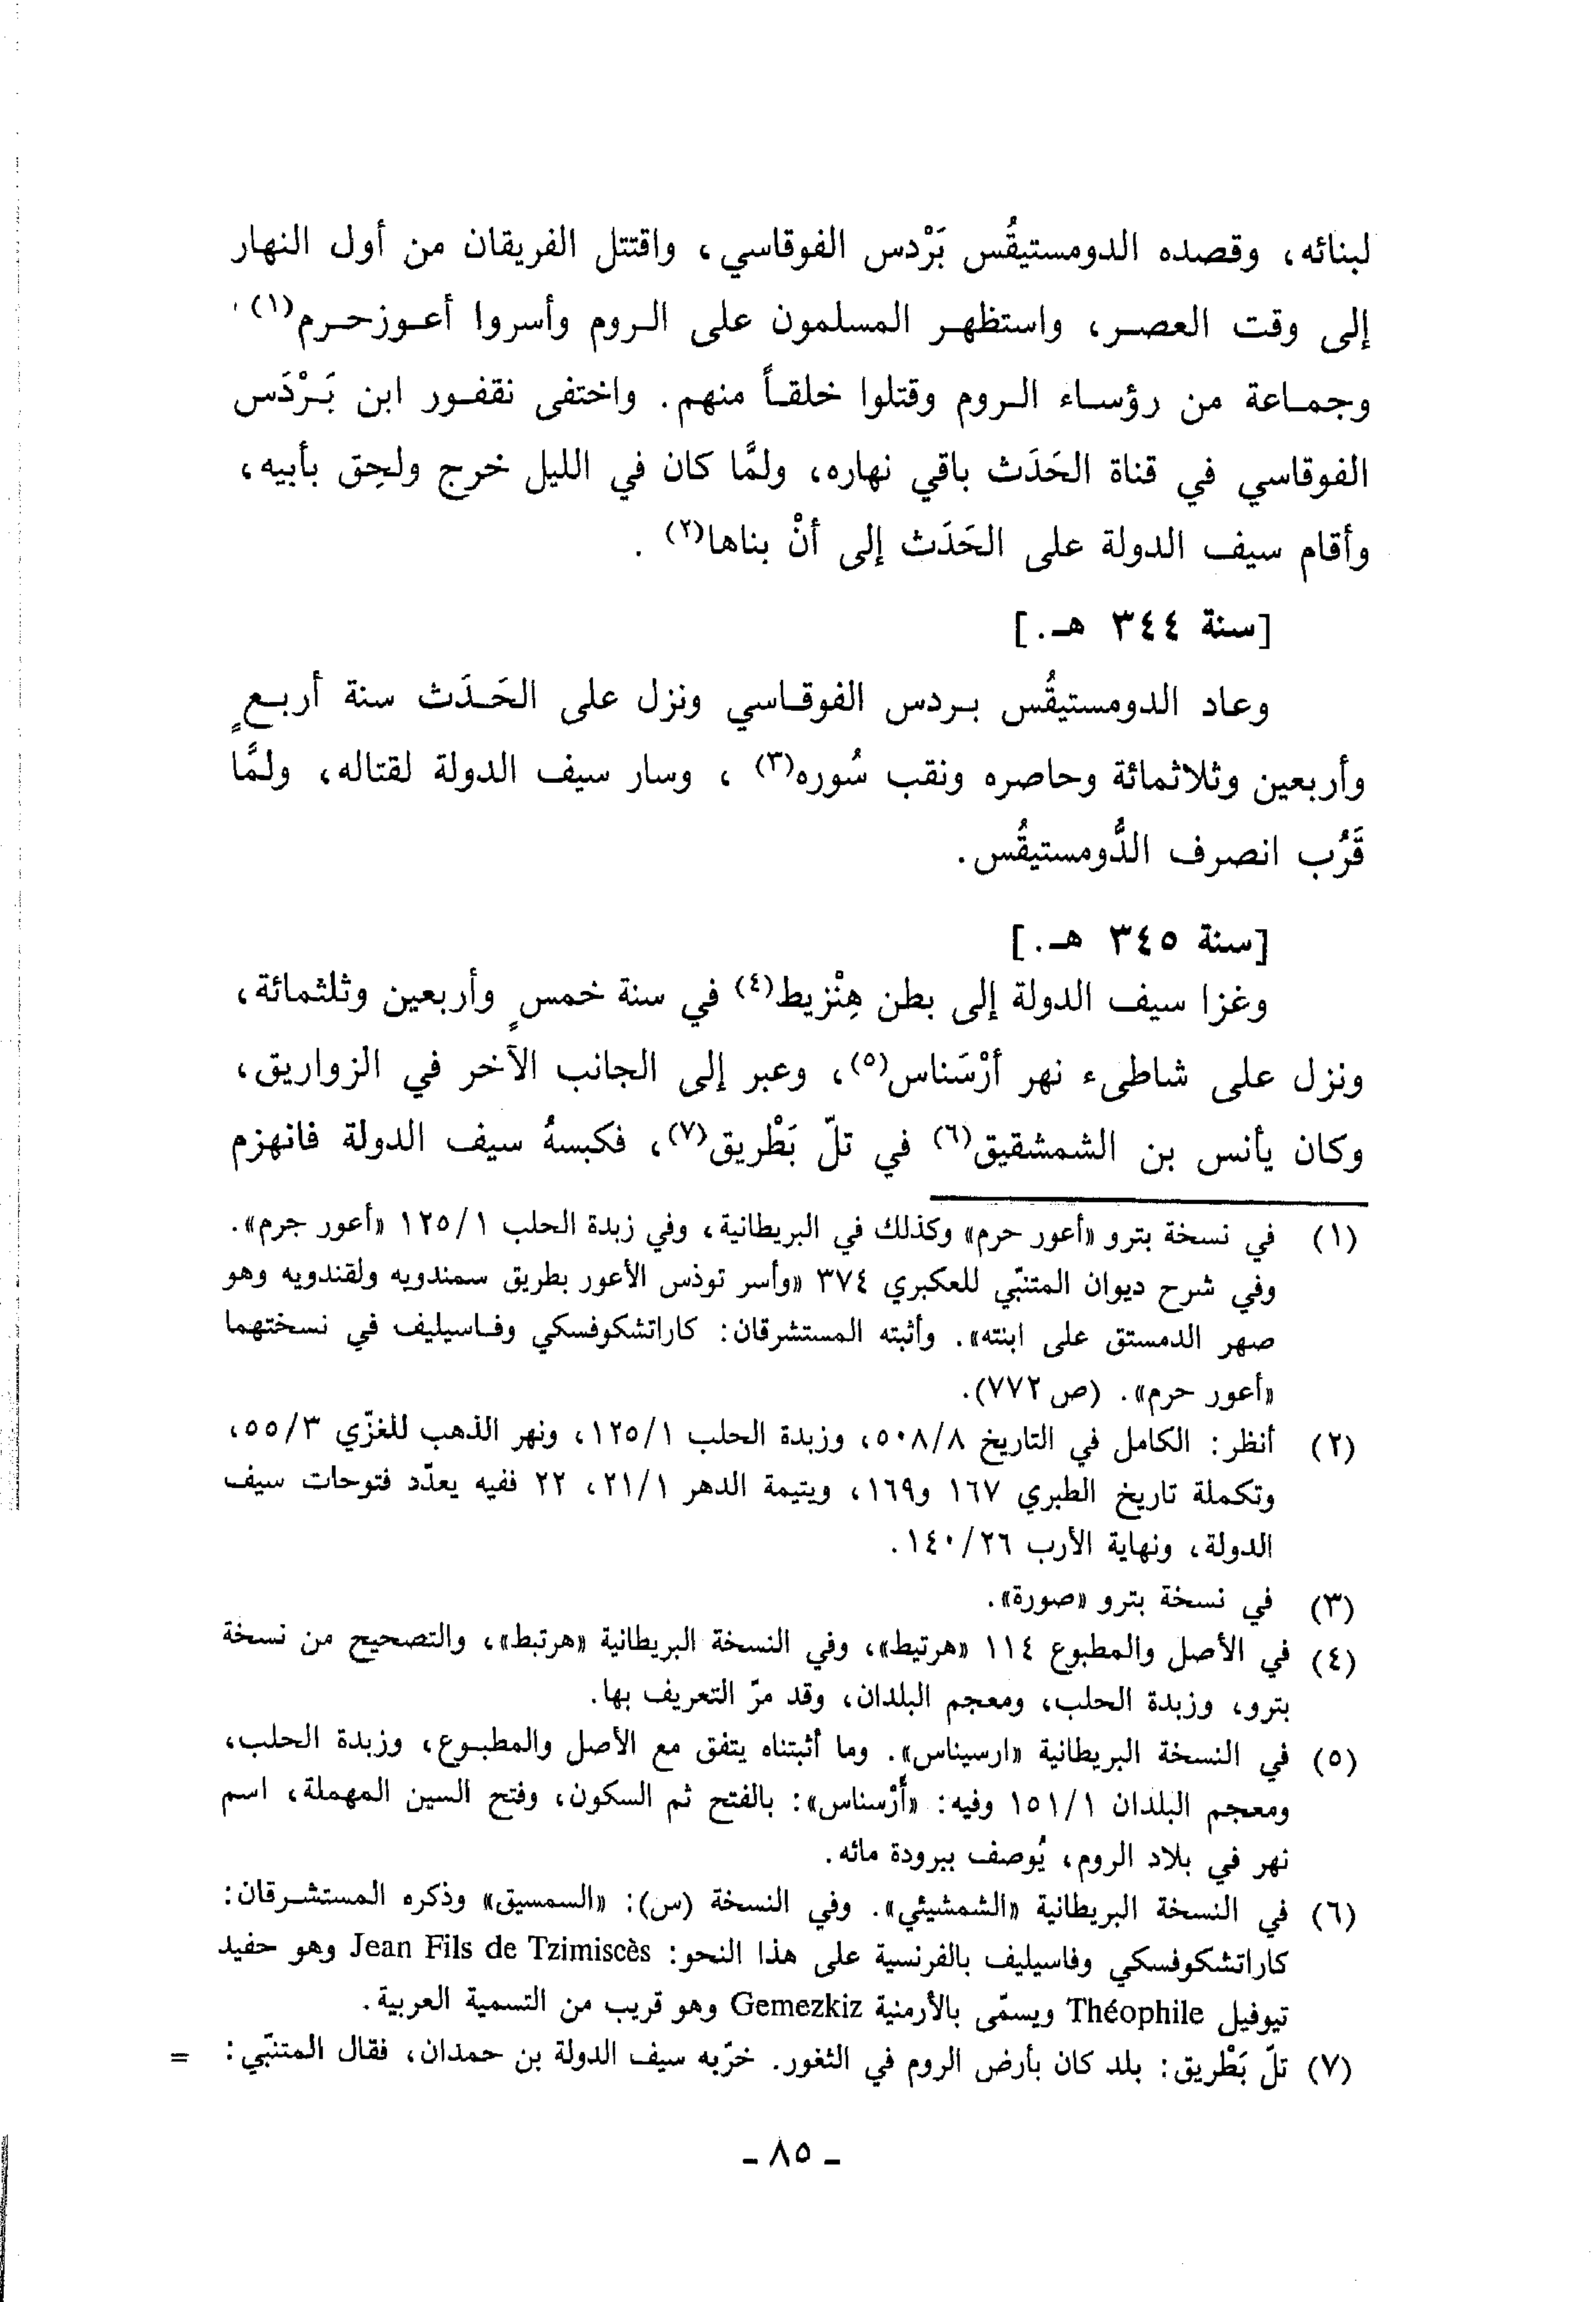 لبنائه، وقصده الدومستيقُس بَرْدس الفوقاسي، واقتتل الفريقان من أول النهار
إلى وقت العصر، واستظهر المسلمون على الروم وأسروا أعوزحرم(١)
وجماعة من رؤساء الروم وقتلوا خلقاً منهم. واختفى نقفور ابن بَرْدَس
الفوقاسي في قناة الحَدَث باقي نهاره، ولمَّا كان في الليل خرج ولحِق بأبيه،
وأقام سيف الدولة على الحَدَث إلى أنْ بناها(٢) .
[سنة ٣٤٤ هـ.]
وعاد الدومستيقُس بردس الفوقاسي ونزل على الحَدَث سنة أربعٍ
وأربعين وثلاثمائة وحاصره ونقب سُوره(٣) ، وسار سيف الدولة لقتاله، ولمَّا
قَرُب انصرف الدُّومستيقُس.
[سنة ٣٤٥ هـ.]
وغزا سيف الدولة إلى بطن هِنْزيط(٤) في سنة خمسٍ وأربعين وثلثمائة،
ونزل على شاطىء نهر أرْسَناس(٥)، وعبر إلى الجانب الآخر في الزواريق،
وكان يأنس بن الشمشقيق(٦) في تلّ بَطْريق(٧)، فكبسهُ سيف الدولة فانهزم
(١) في نسخة بترو «أعور حرم» وكذلك في البريطانية، وفي زبدة الحلب ١٢٥/١ «أعور جرم».
وفي شرح ديوان المتنبّي للعكبري ٣٧٤ «وأسر توذس الأعور بطريق سمندويه ولقندويه وهو
صهر الدمستق على ابنته». وأثبته المستشرقان: كاراتشكوفسكي وفاسيليف في نسختهما
«أعور حرم». (ص ٧٧٢).
(٢) أنظر: الكامل في التاريخ ٥٠٨/٨، وزبدة الحلب ١٢٥/١، ونهر الذهب للغزّي ٥٥/٣،
وتكملة تاريخ الطبري ١٦٧ و١٦٩، ويتيمة الدهر ٢١/١، ٢٢ ففيه يعدّد فتوحات سيف
الدولة، ونهاية الأرب ١٤٠/٢٦.
(٣) في نسخة بترو «صورة».
(٤) في الأصل والمطبوع ١١٤ «هرتيط»، وفي النسخة البريطانية «هرتبط»، والتصحيح من نسخة
بترو، وزبدة الحلب، ومعجم البلدان، وقد مرّ التعريف بها.
(٥) في النسخة البريطانية «ارسيناس». وما أثبتناه يتفق مع الأصل والمطبوع، وزبدة الحلب،
ومعجم البلدان ١٥١/١ وفيه: «أَرْسناس»: بالفتح ثم السكون، وفتح السين المهملة، اسم
نهر في بلاد الروم، يُوصف ببرودة مائه.
(٦) في النسخة البريطانية «الشمشيئي». وفي النسخة (س): «السمسيق» وذكره المستشرقان:
كاراتشكوفسكي وفاسيليف بالفرنسية على هذا النحو: Jean Fils de Tzimiscès وهو حفيد
تيوفيل Théophile ويسمّى بالأرمنية Gemezkiz وهو قريب من التسمية العربية.
(٧) تلّ بَطْريق: بلد كان بأرض الروم في الثغور. خرّبه سيف الدولة بن حمدان، فقال المتنبّي: =
- ٨٥ -